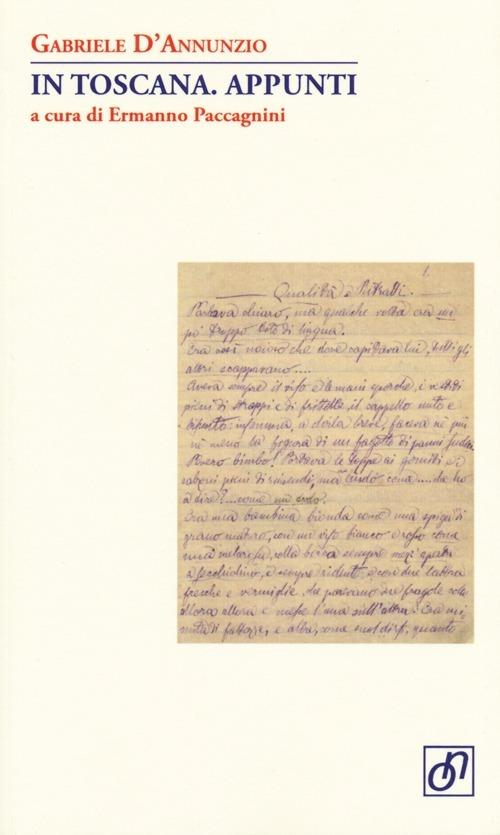 GABRIELE D'ANNUNZIO
IN TOSCANA. APPUNTI
a cura di Ermanno Paccagnini
1.
Qualità e Ritratti.
Parlava chiaro, ma qualche volta era un
po' troppo lesto di lingua.
Era così noioso che dove capitava lui, tutti gli
altri scappavano....
Aveva sempre il viso e le mani sporche, i vestiti
pieni di strappi e di frittelle, il cappello unto e
bisunto: insomma, a dirla breve, faceva nè più
nè meno la figura di un fagotto di panni sudici.
Povero bimbo! Portava le toppe ai gomiti e i
calzoni pieni di rimendi, ma lindo come.... che ho
a dire?.... come
Era una bambina bionda come una spiga di
grano maturo, con un viso bianco e rosso come
una melarosa, colla bocca sempre mezz'aperta
a secchiolino, e sempre ridente, e con due labbra
fresche e vermiglie, che parevano due fragole colte
allora allora e messe l'una sull'altra. Era mi-
nuta di fattezze, e alta, come suol dirsi, quanto